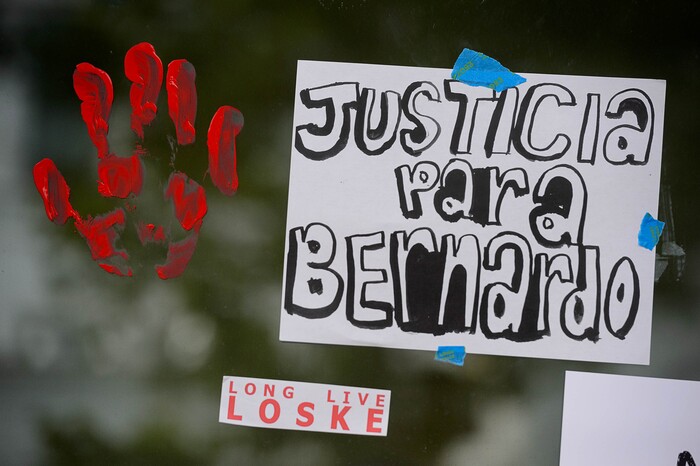 JUSTICIA
para
BERNARDO
LONG LIVE
LOSKE